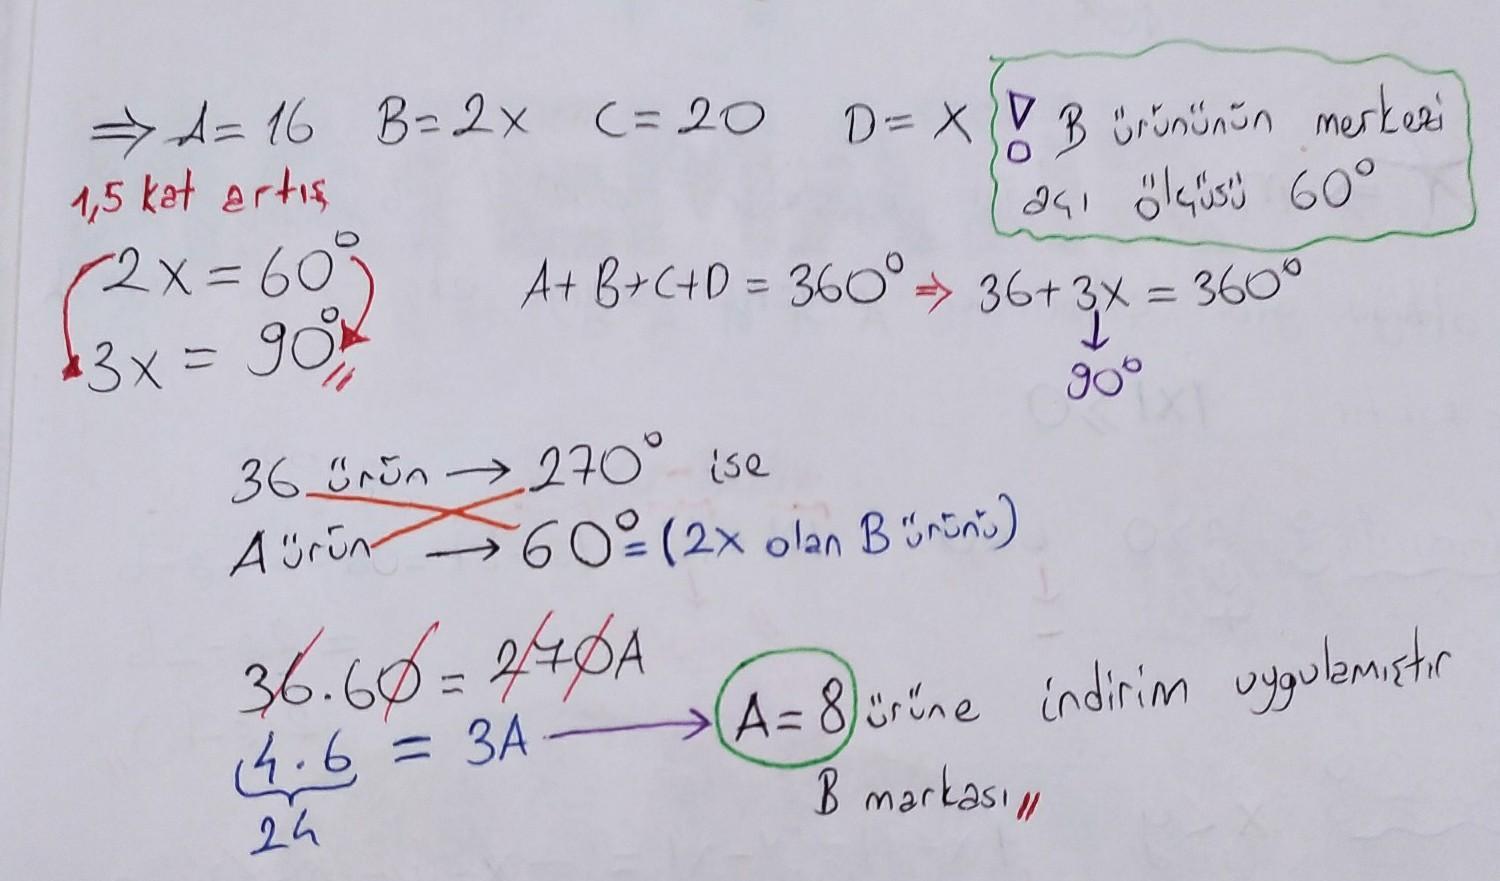 ⇒ A= 16 B=2x C=20 D=X
! B ürününün merkezi
açı ölçüsü 60°
1,5 kat artış
2x = 60°
3x = 90°
A+B+C+D = 360° ⇒ 36+3x = 360°
90°
36 ürün → 270° ise
A ürün → 60° = (2x olan B ürünü)
36.60 = 270A
4.6 = 3A → A=8 ürüne indirim uygulamıştır
24
B markası